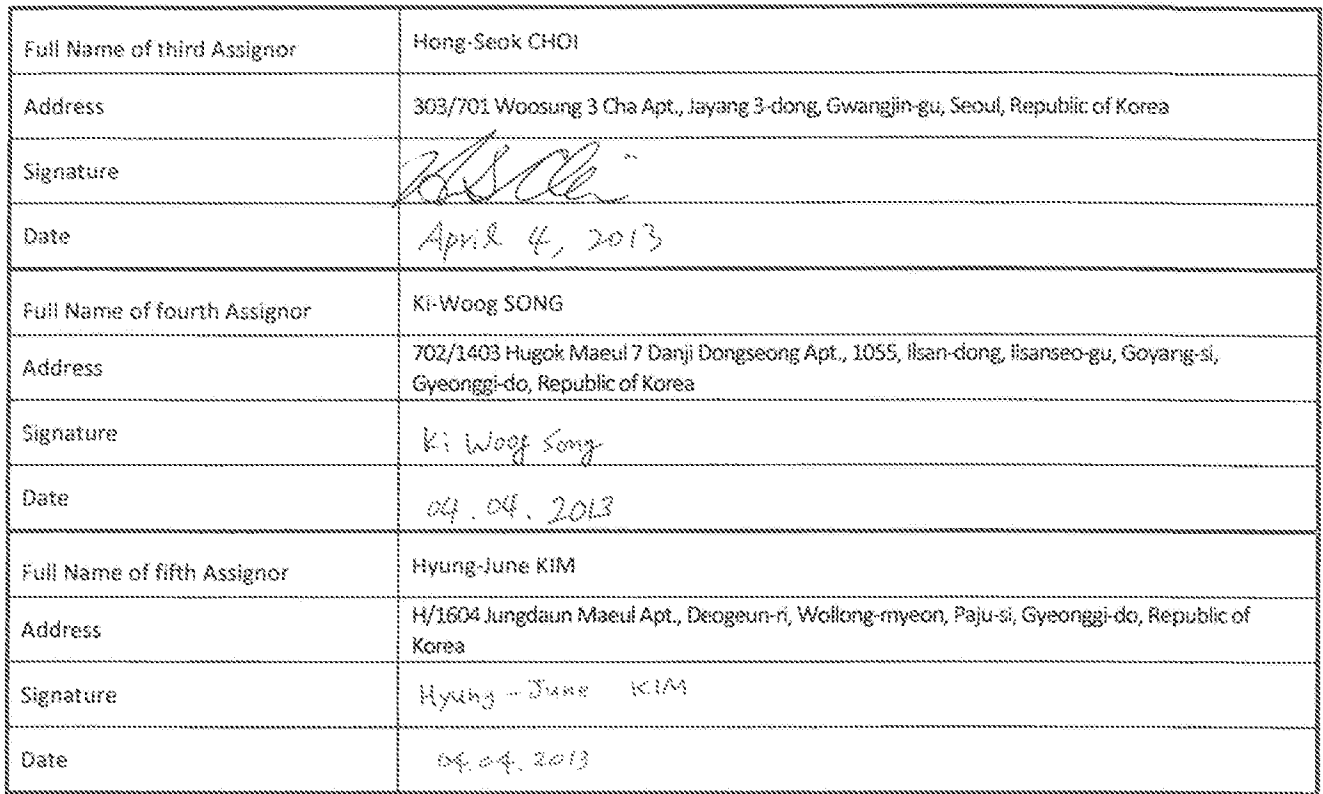 Full Name of third Assignor Hong-Seok CHOI
Address 303/701 Woosung 3 Cha Apt., Jayang 3-dong, Gwangjin-gu, Seoul, Republic of Korea
Signature HS Choi
Date April 4, 2013
Full Name of fourth Assignor Ki-Woog SONG
Address 702/1403 Hugok Maeul 7 Danji Dongseong Apt., 1055, Ilsan-dong, Ilsanseo-gu, Goyang-si,
Gyeonggi-do, Republic of Korea
Signature Ki Woog Song
Date 04. 04. 2013
Full Name of fifth Assignor Hyung-June KIM
Address H/1604 Jungdaun Maeul Apt., Deogeun-ri, Wollong-myeon, Paju-si, Gyeonggi-do, Republic of
Korea
Signature Hyung-June KIM
Date 04.04.2013